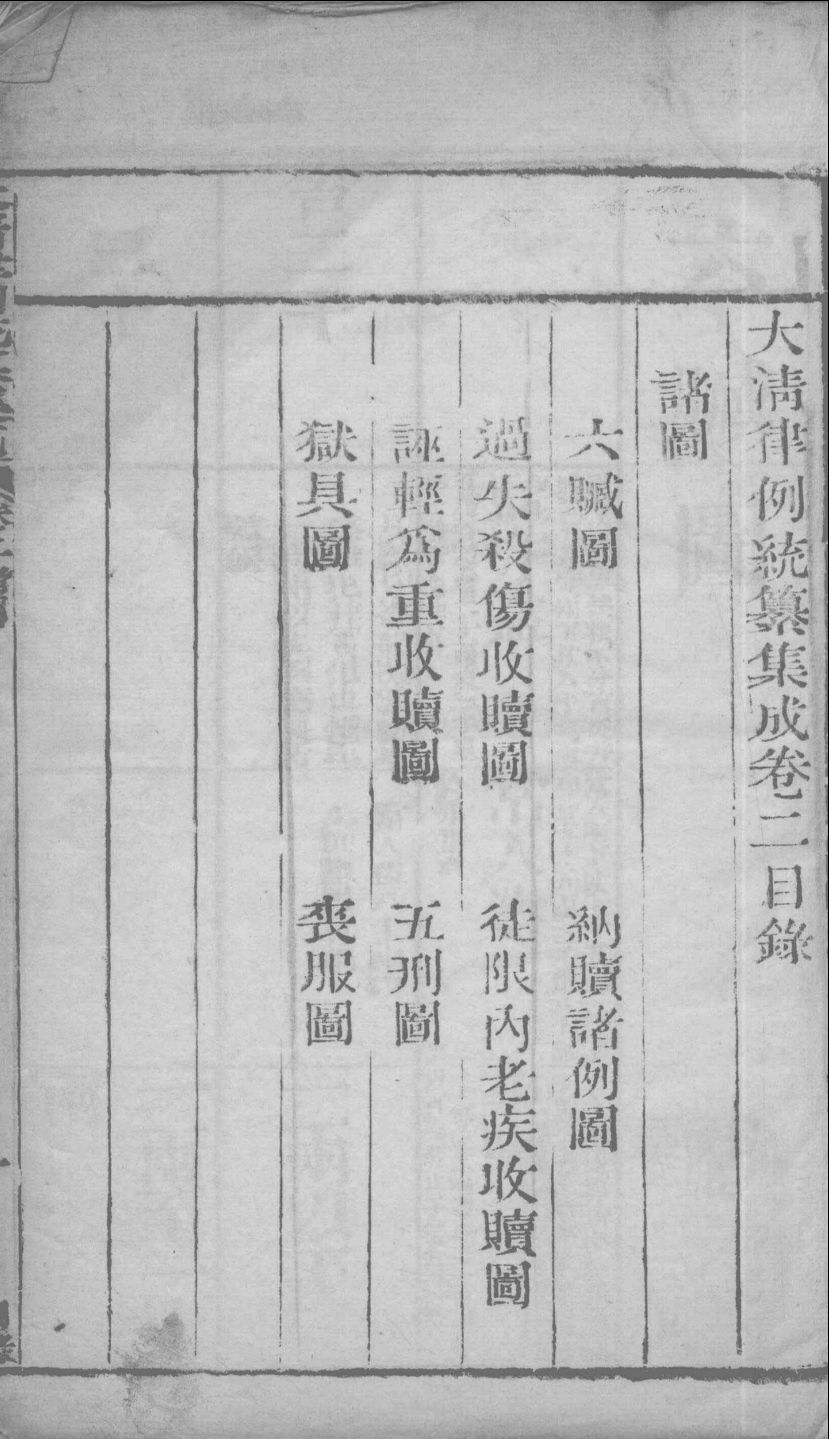 大清律例統纂集成卷二目錄
諸圖
六贓圖 納贖諸例圖
過失殺傷收贖圖 徒限內老疾收贖圖
誣輕爲重收贖圖 五刑圖
獄具圖 喪服圖